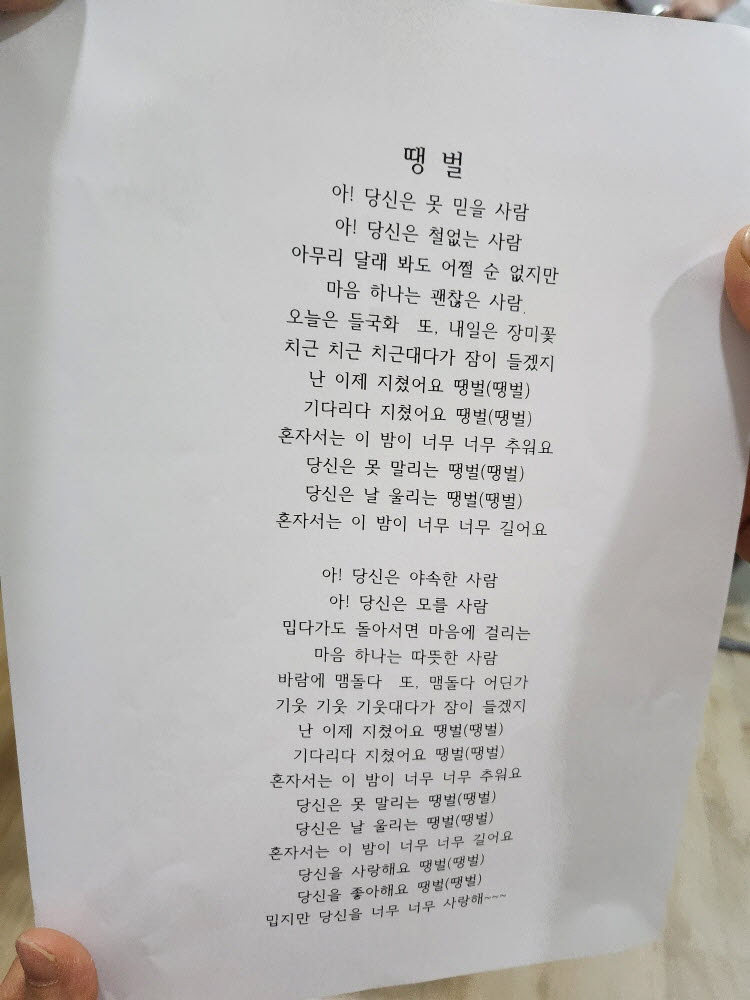 땡 벌
아! 당신은 못 믿을 사람
아! 당신은 철없는 사람
아무리 달래 봐도 어쩔 순 없지만
마음 하나는 괜찮은 사람.
오늘은 들국화 또, 내일은 장미꽃
치근 치근 치근대다가 잠이 들겠지
난 이제 지쳤어요 땡벌(땡벌)
기다리다 지쳤어요 땡벌(땡벌)
혼자서는 이 밤이 너무 너무 추워요
당신은 못 말리는 땡벌(땡벌)
당신은 날 울리는 땡벌(땡벌)
혼자서는 이 밤이 너무 너무 길어요
아! 당신은 야속한 사람
아! 당신은 모를 사람
밉다가도 돌아서면 마음에 걸리는
마음 하나는 따뜻한 사람
바람에 맴돌다 또, 맴돌다 어딘가
기웃 기웃 기웃대다가 잠이 들겠지
난 이제 지쳤어요 땡벌(땡벌)
기다리다 지쳤어요 땡벌(땡벌)
혼자서는 이 밤이 너무 너무 추워요
당신은 못 말리는 땡벌(땡벌)
당신은 날 울리는 땡벌(땡벌)
혼자서는 이 밤이 너무 너무 길어요
당신을 사랑해요 땡벌(땡벌)
당신을 좋아해요 땡벌(땡벌)
밉지만 당신을 너무 너무 사랑해~~~